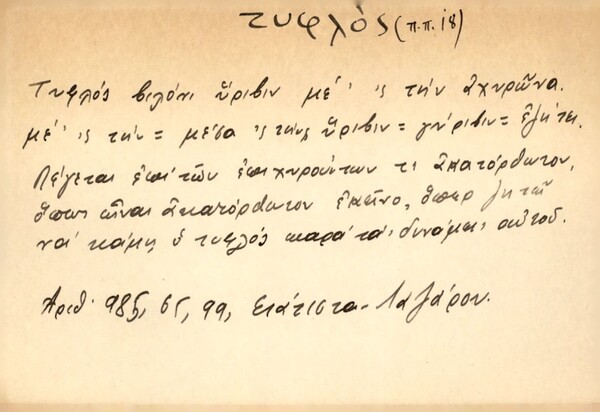 τυφλὸς (π.π. 18)
Τυφλὸς βιλόνι ὕριβιν μέ' 'ς τὴν ἀχυρῶνα.
μέ' 'ς τὴν = μέσα 'ς τὴν, ὕριβιν = γύριβιν = ἐζήτει.
Λέγεται ἐπὶ τῶν ἐπιχειρούντων τι ἀκατόρθωτον,
ὅπως εἶναι ἀκατόρθωτον ἐκεῖνο, ὅπερ ζητεῖ
νὰ κάμῃ ὁ τυφλὸς παρὰ τὰς δυνάμεις αὐτοῦ.
Ἀριθ. 985, 65, 99, Σιάτιστα - Λαζάρου.